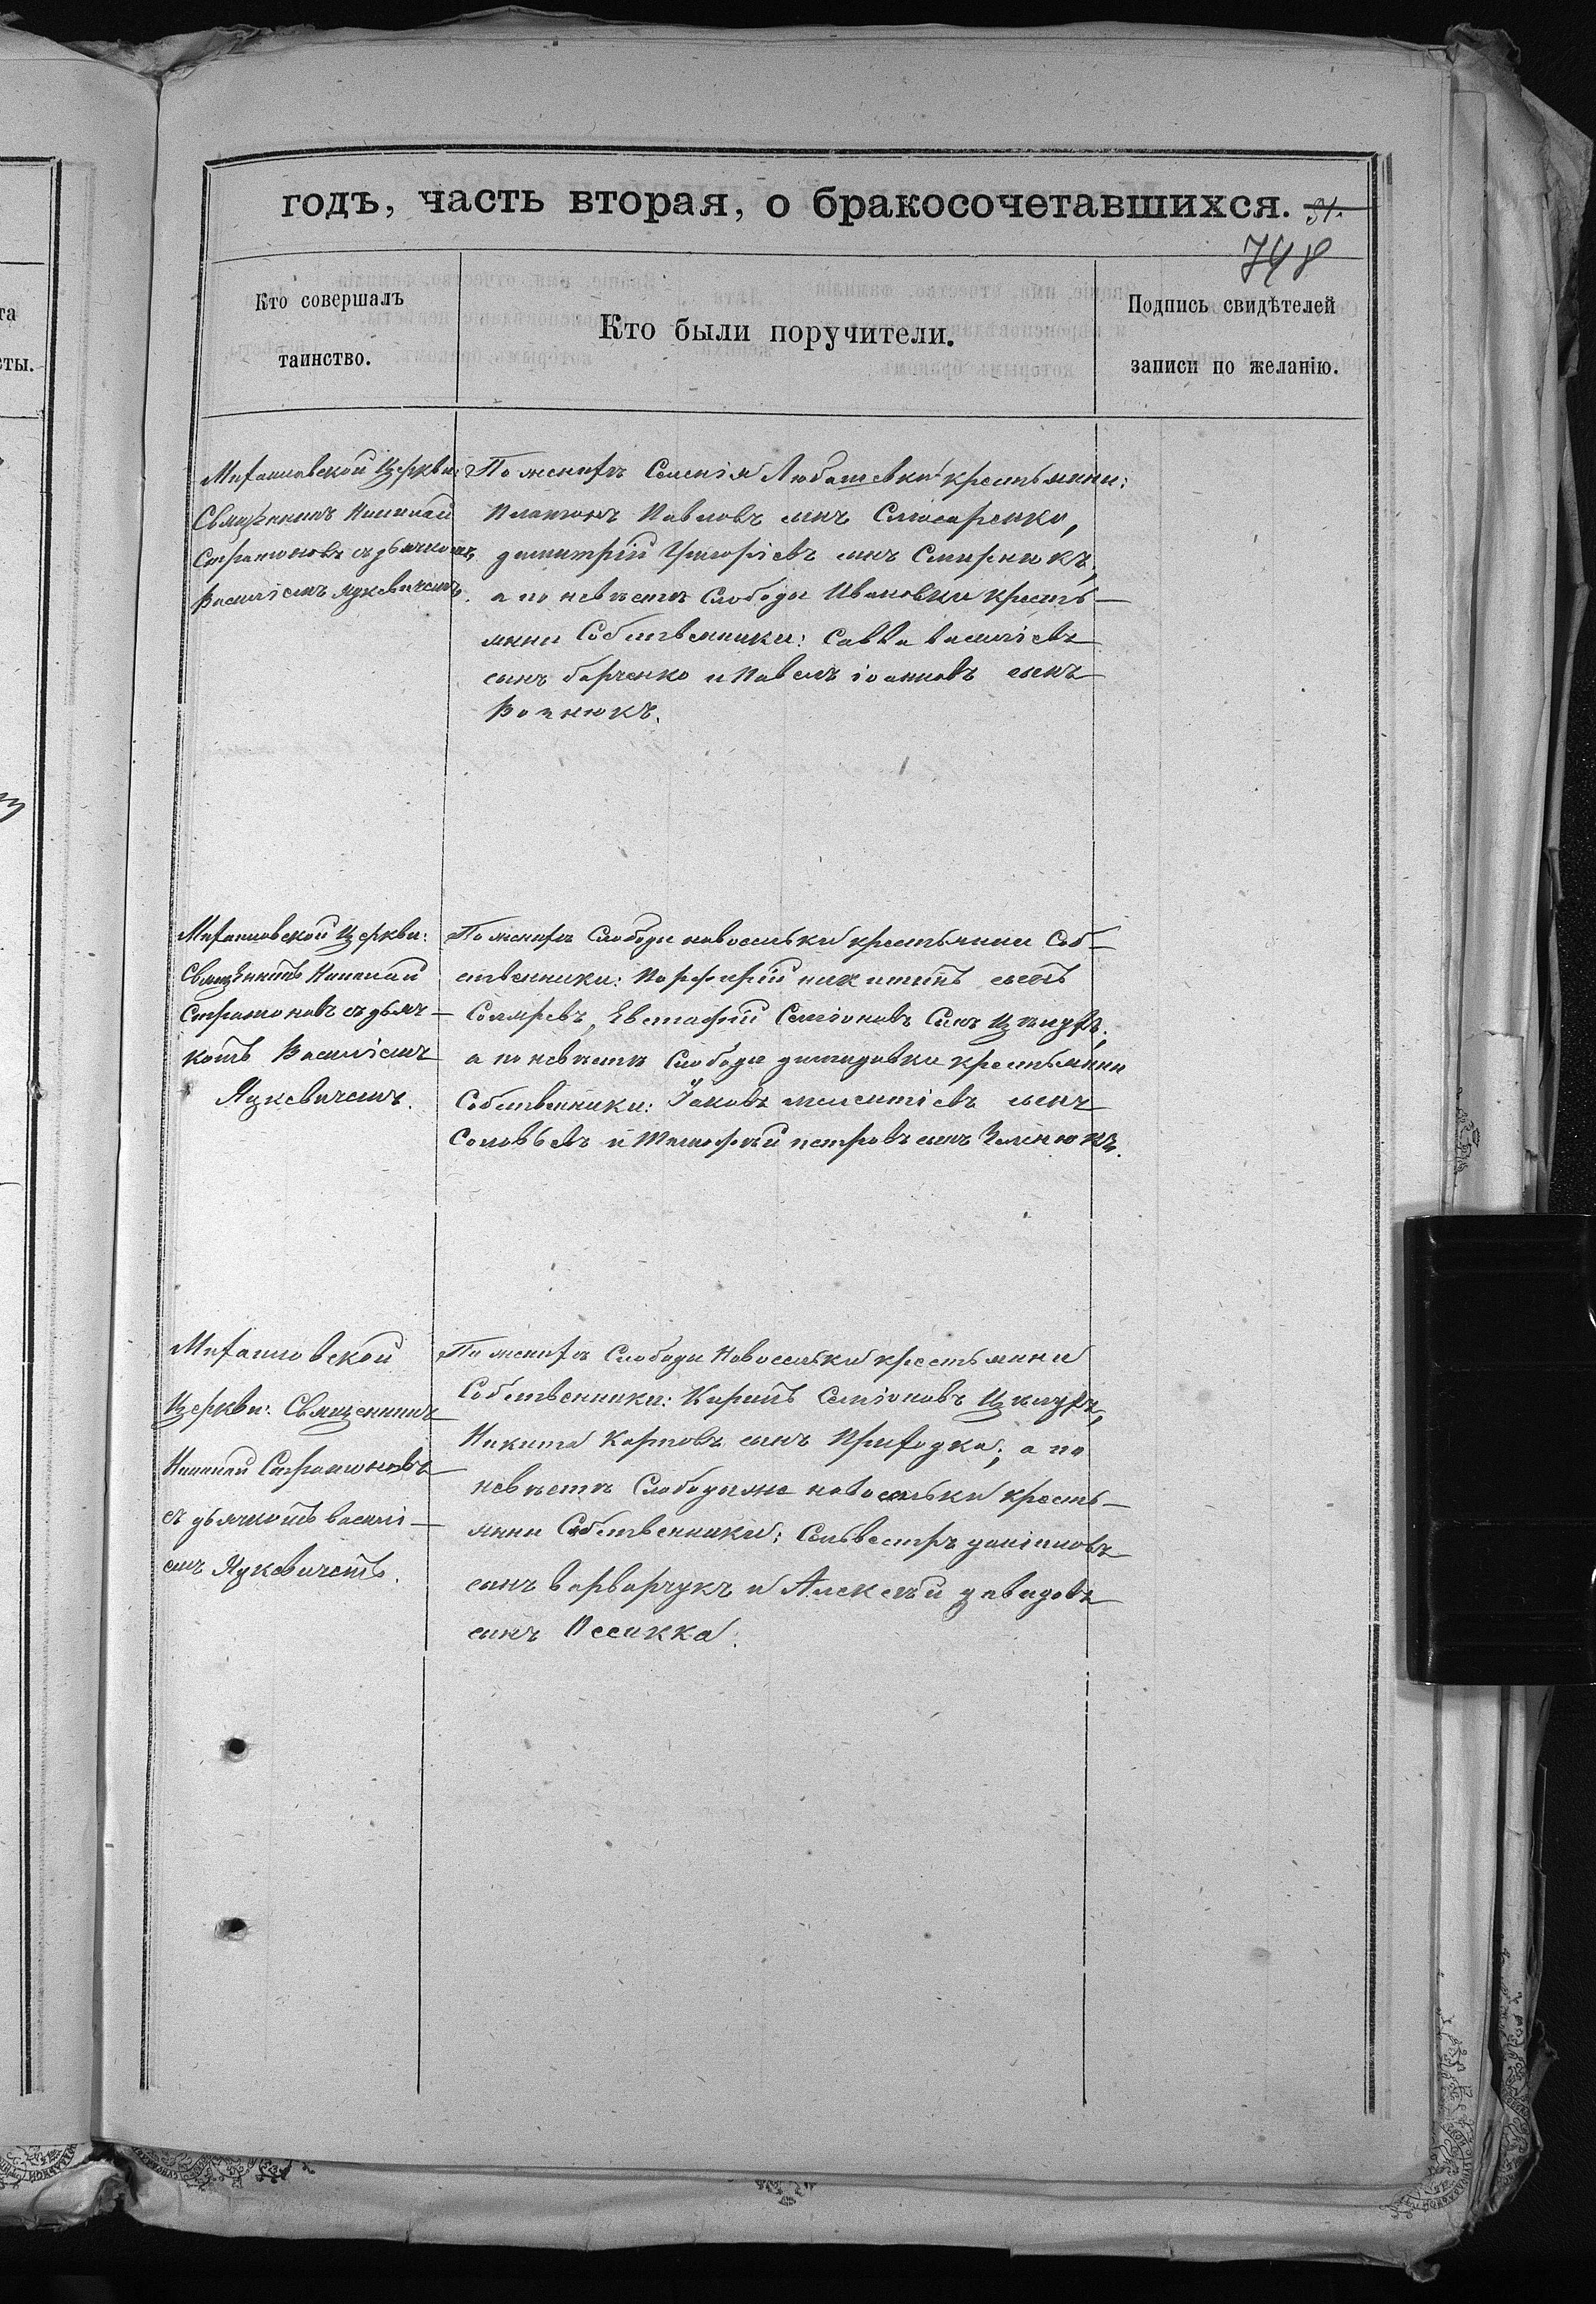 годъ, часть вторая, о бракосочетавшихся. 31.
748
Кто совершалъ
таинство.
Кто были поручители.
Подпись свидѣтелей
записи по желанію.
Михайловской Церкви:
Священникъ Николай
Стратоновъ съ дьячкомъ
Василіемъ Яцкевичемъ.
По женихѣ Селенія Любашевки крестьянни:
Платонъ Павловъ сынъ Слюсаренко,
димитрій Григоріевъ сынъ Смирнюкъ,
а по невѣстѣ Слободы Ивановки кресть-
янни Собственники: Савва василіевъ
сынъ барченко и Павелъ іоанновъ сынъ
Вознюкъ.
Михайловской Церкви:
Священникъ Николай
Стратоновъ съ дьяч-
комъ Василіемъ
Яцкевичемъ.
По женихѣ Слободы новоселки крестьянни Соб-
ственники: Порфирій никитинъ сынъ
Столяревъ, Евстафій Семіоновъ Сынъ Цвицуръ,
а по невѣстѣ Слободы демидовки крестьянни
Собственники: Іаковъ мелентіевъ сынъ
Соловьевъ и Тимофѣй петровъ сынъ Зеленюкъ.
Михайловской
Церкви: Священникъ
Николай Стратоновъ
съ дьячкомъ василі-
емъ Яцкевичемъ.
По женихѣ Слободы Новоселки крестьянни
Собственники: Кирилъ Семіоновъ
Никита Карповъ сынъ Приходка; а по
невѣстѣ Слободы же новоселки кресть-
янни Собственники; Сильвестръ даніиловъ
сынъ варварчукъ и Алексѣй давидовъ
сынъ